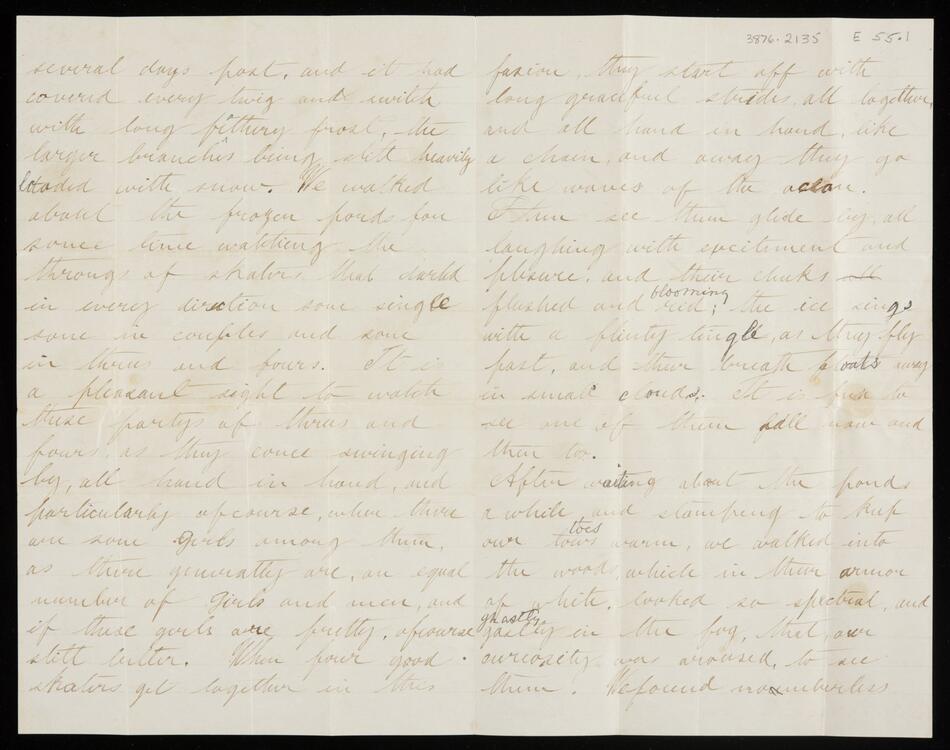 3876.2135 E 55.1
several days past, and it had
covered every twig and switch
with long fethery frost, the
larger branches being still heavily
loaded with snow. We walked
about the frozen pond for
some time watching the
throngs of skaters that darted
in every direction some single
some in couples and some
in threes and fours. It is
a pleasant sight to watch
these partys of threes and
fours, as they come swinging
by, all hand in hand, and
particularly ofcourse, when there
are some Girls among them,
as there generally are, an equal
number of Girls and men, and
if these girls are pretty, ofcourse
still better. When four good
skaters get together in this
fasion, they start off with
long graceful strides, all together,
and all hand in hand, like
a chain, and away they go
like waves of the ocean.
I then see them glide by, all
laughing with excitement and
plesure, and their cheeks all
blooming
flushed and red; the ice sings
with a flinty tingle, as they fly
past, and their breath floats away
in small clouds. It is fun to
see one of them fall now and
then too.
After waiting about the ponds
a while and stamping to keep
toes
our tows warm, we walked into
the woods, which in their armor
of white, looked so spectral, and
ghastly
gastly in the fog, that our
curiosity was aroused, to see
them. We found numberless